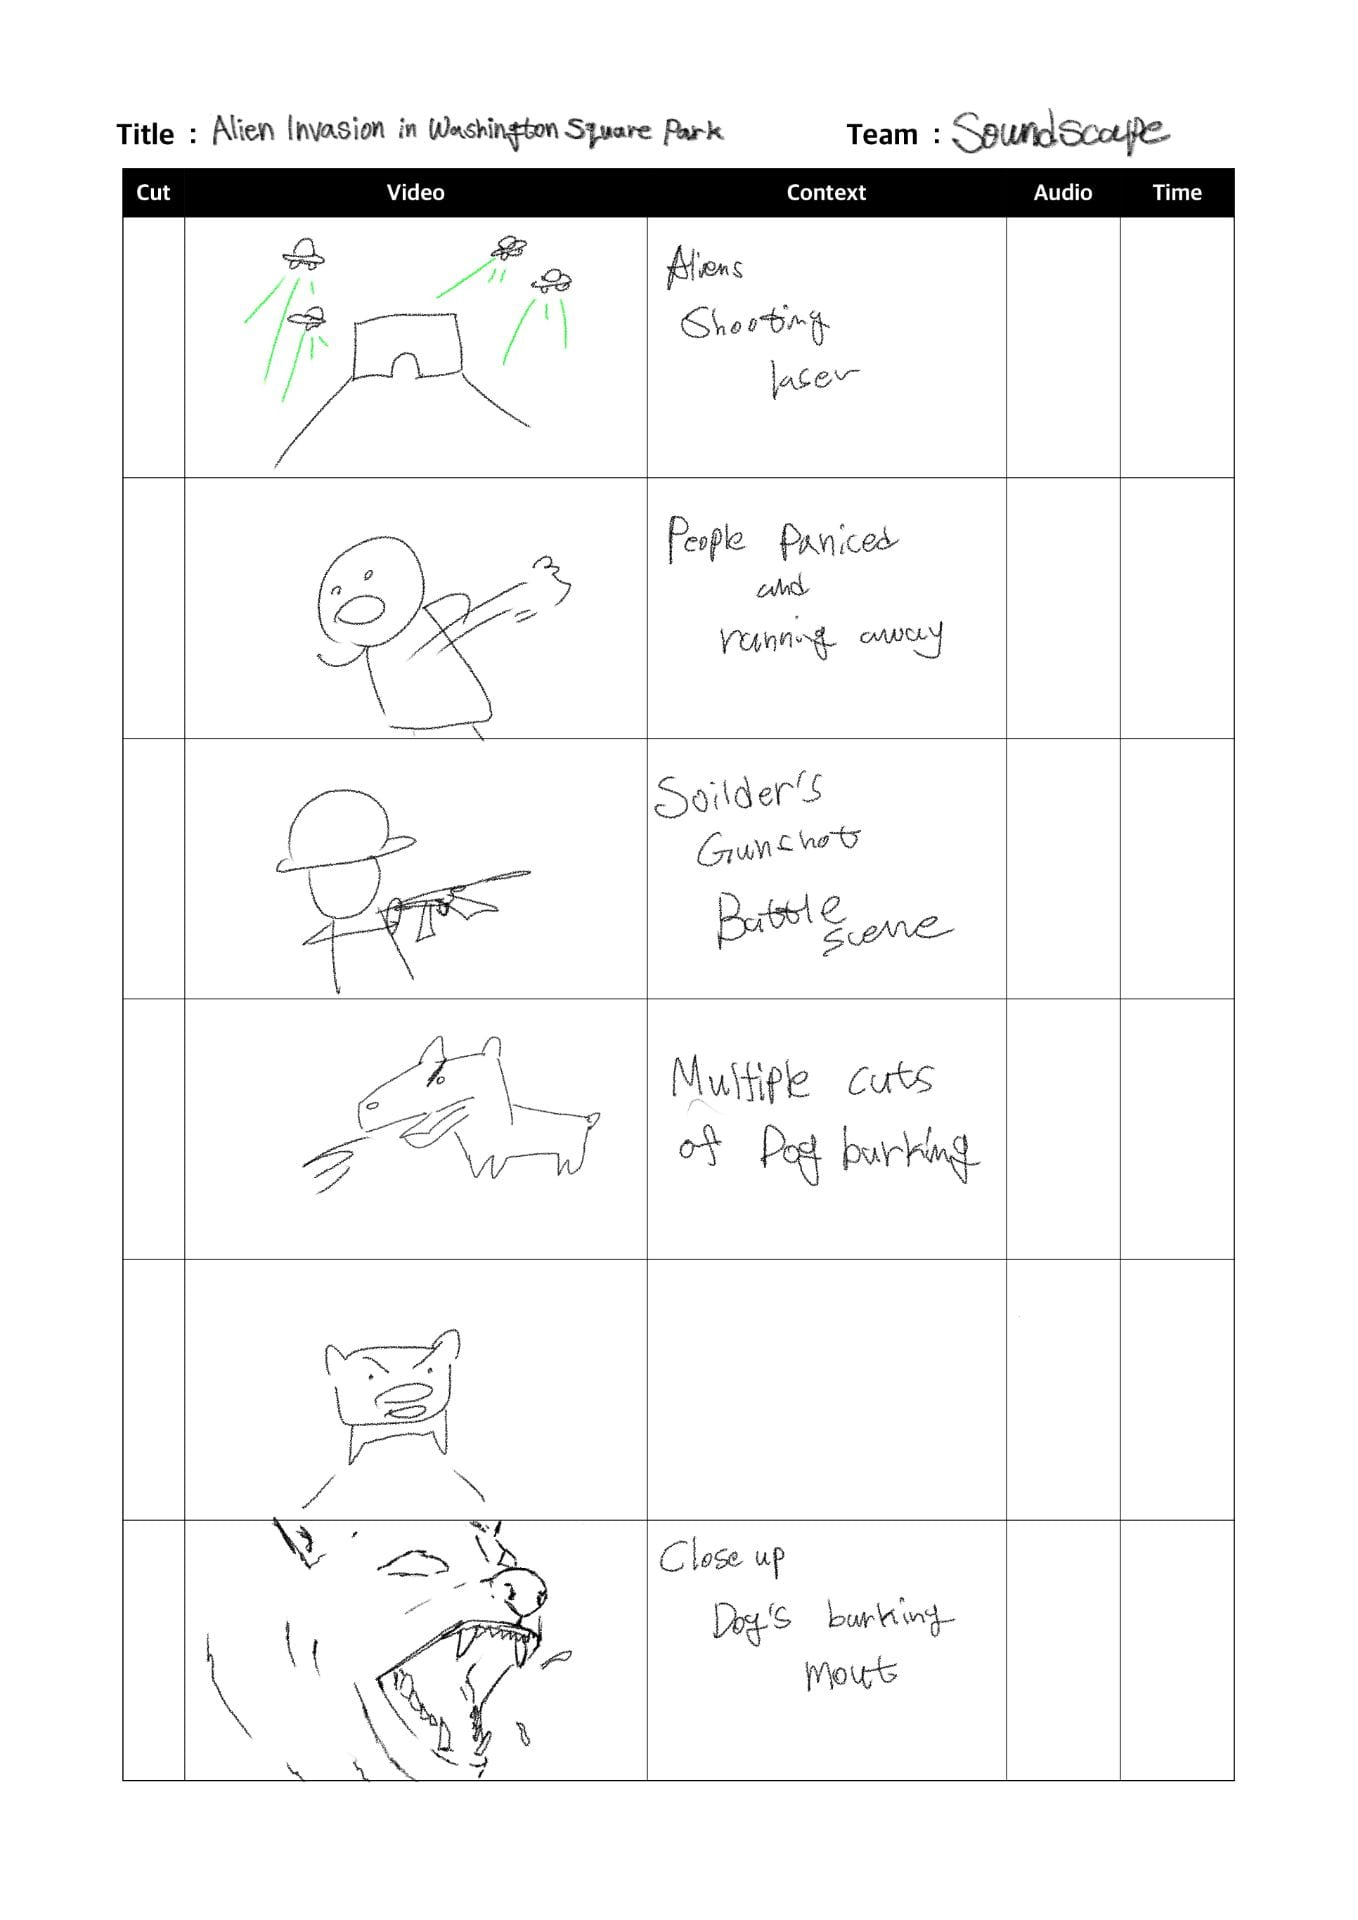 Title : Alien Invasion in Washington Square Park Team : Soundscape
Cut Video Context Audio Time
Aliens
Shooting
laser
People Paniced
and
running away
Soilder's
Gunshot
Battle
scene
Multiple cuts
of Dog barking
Close up
Dog's barking
mout